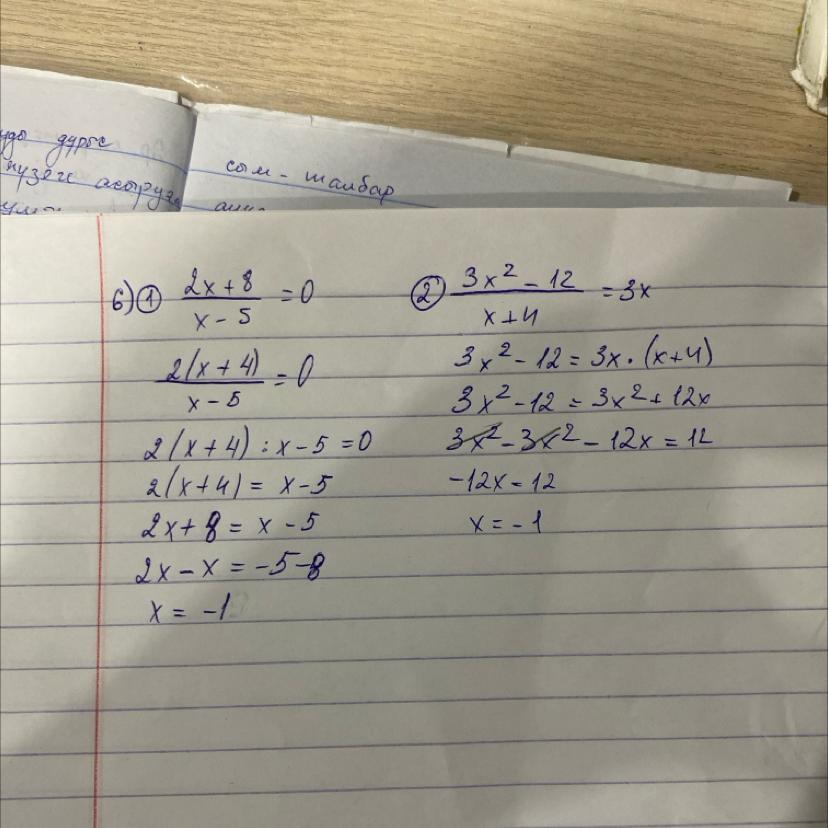 дұрыс
асыруға
сым - шалбар
6) ① (2x+8)/(x-5) = 0
2(x+4)/(x-5) = 0
2(x+4) : x-5 = 0
2(x+4) = x-5
2x+8 = x-5
2x-x = -5-8
x = -1
② (3x²-12)/(x+4) = 3x
3x²-12 = 3x·(x+4)
3x²-12 = 3x²+12x
3x²-3x²-12x = 12
-12x = 12
x = -1